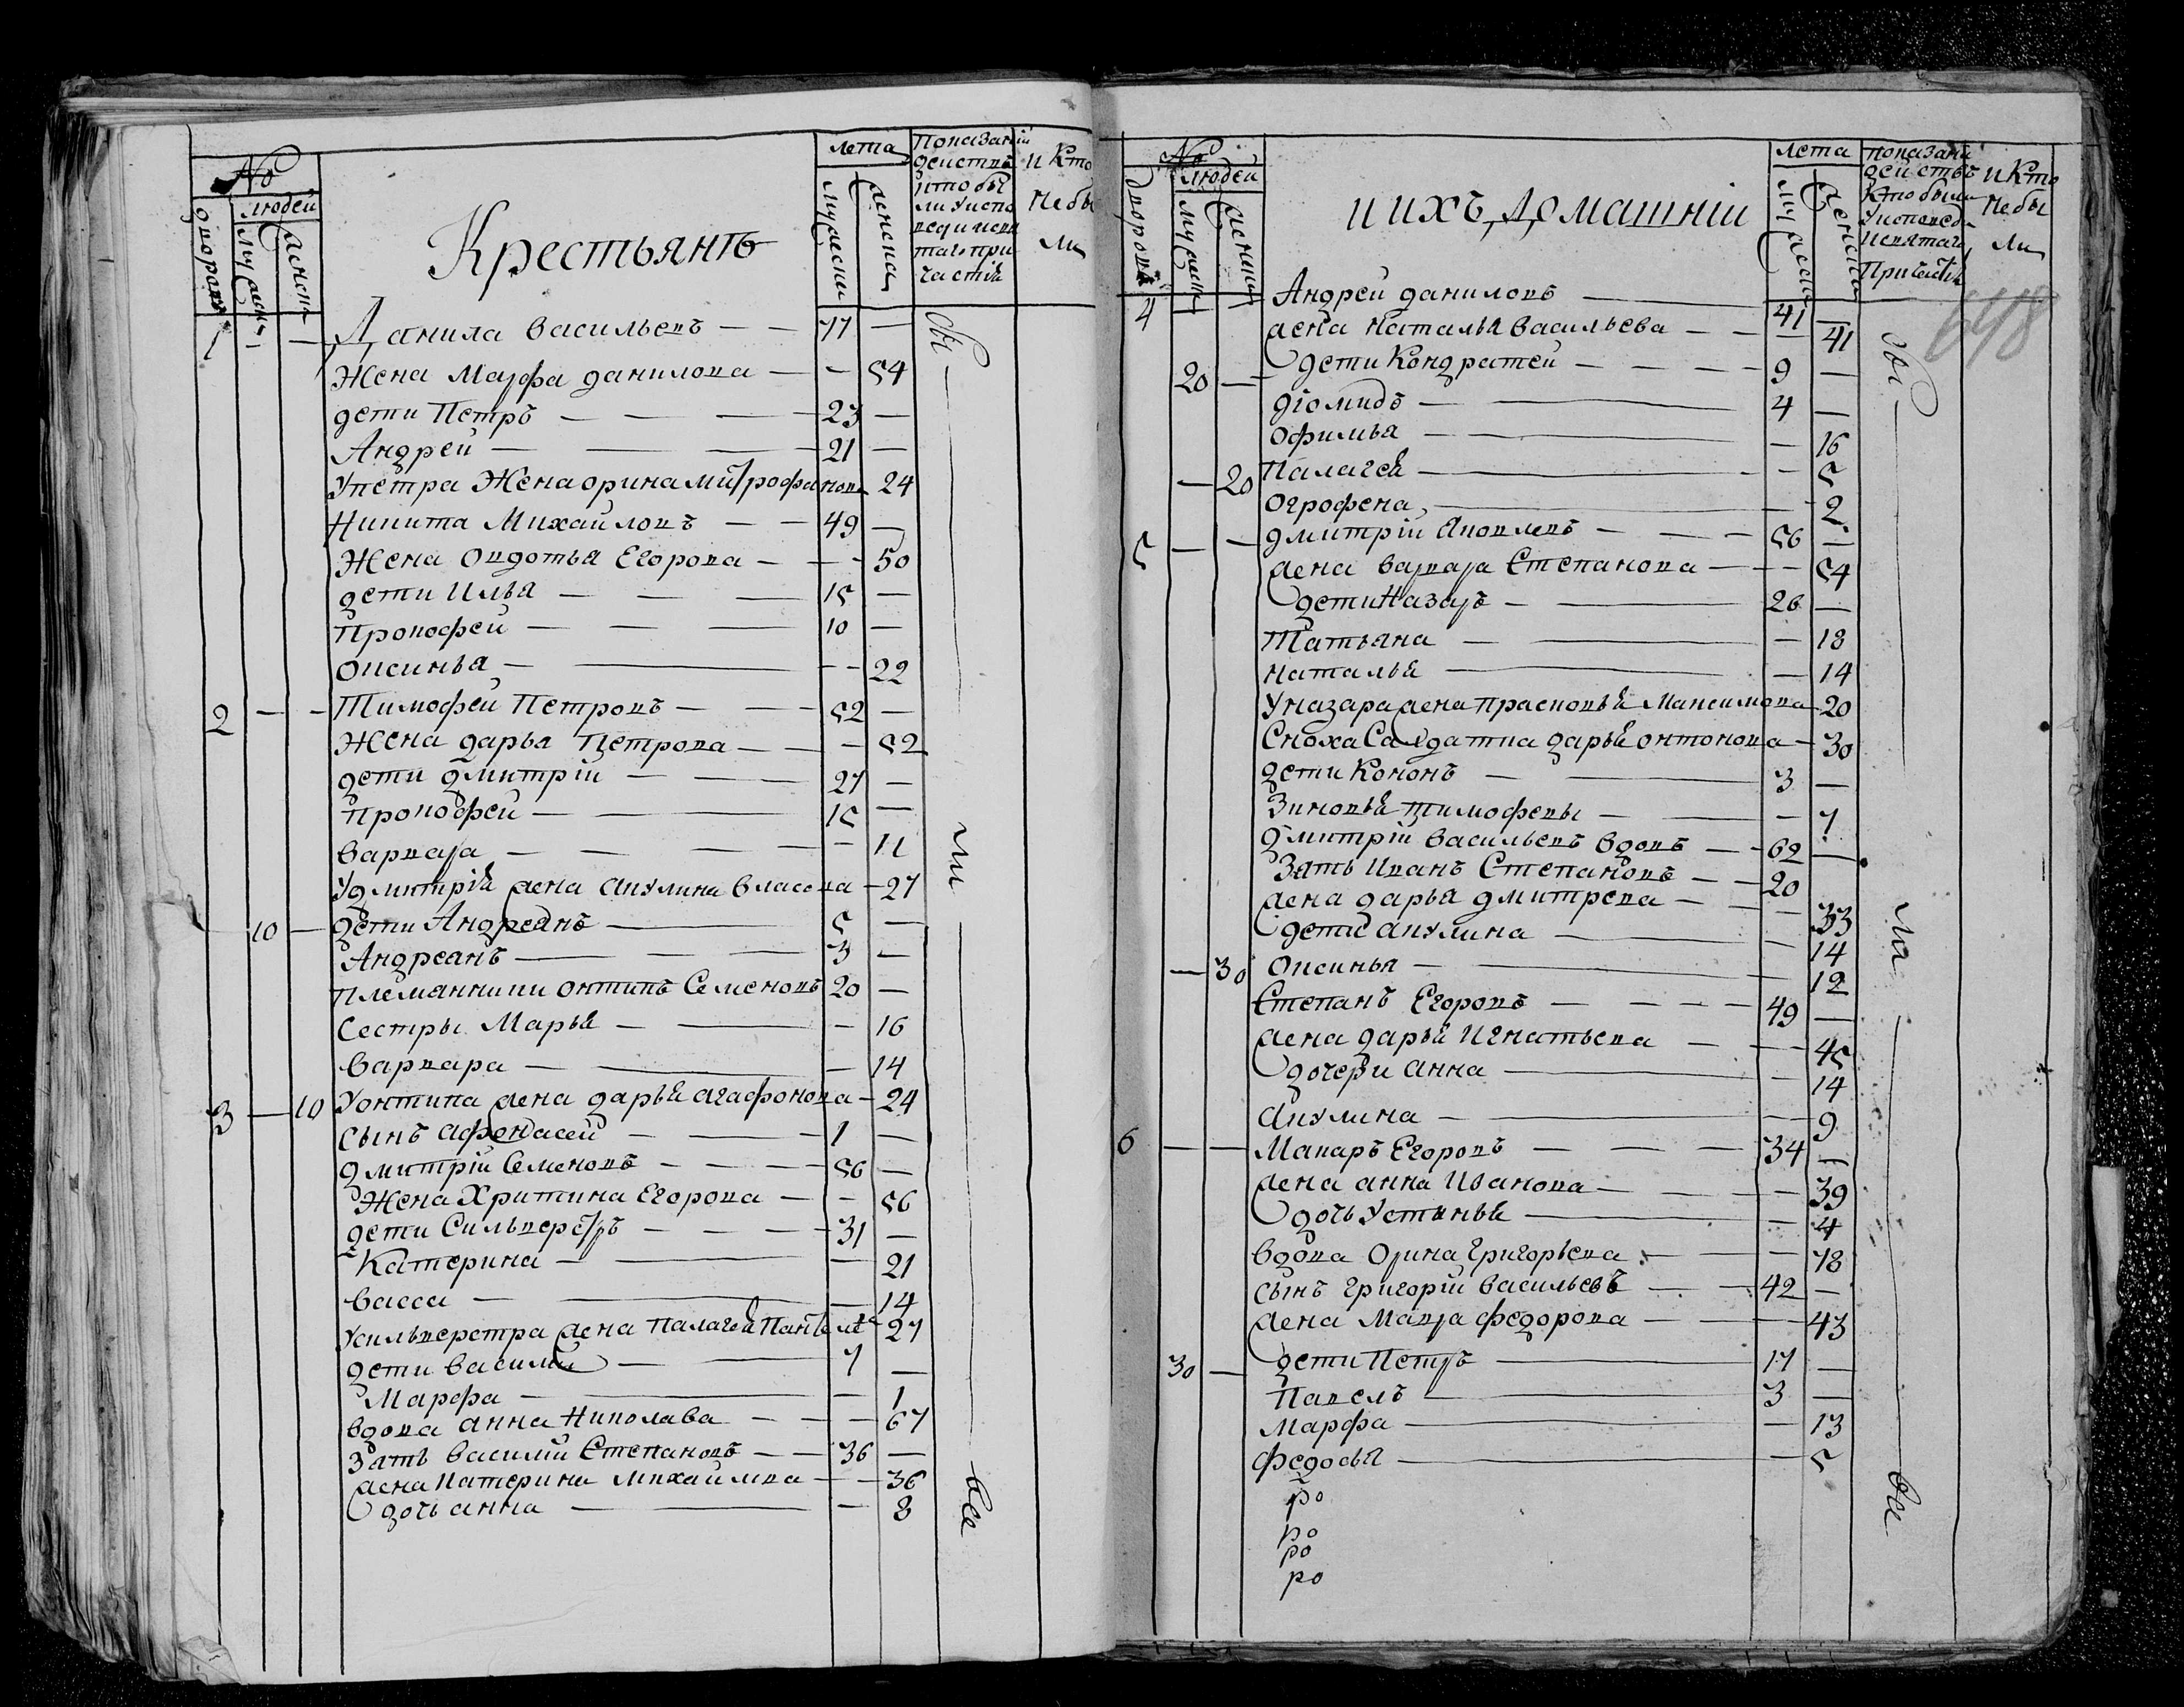 №
людей
дворовъ
мужеска
женска
Крестьянъ
лета
мужески
женска
показаній
действъ
кто бы
ли у испо
веди и свя
таго при
частія
и Кто
не бы
ли
1 — — Данила васильевъ — — 77 —
Жена Марфа данилова — — 54
дети Петръ — — — 23 —
Андрей — — — 21 —
У петра Жена орина митрофанова 24
Никита Михайловъ — — 49 —
Жена овдотья Егорова — — 50
дети Илья — — — 15 —
Прокофей — — — 10 —
оксинья — — — 22
2 — — Тимофей Петровъ — — 52 —
Жена дарья Петрова — — — 52
дети дмитрій — — 27 —
прокофей — — 15 —
варвара — — — — 11
У дмитрія жена акулина власова — 27
10 — дети Андреянъ — 5 —
Андреанъ — — — 3 —
племянники онтипъ Семеновъ 20 —
Сестры Марья — — — 16
варвара — — — 14
3 — 10 У онтипа жена дарья агафонова — 24
сынъ афонасей — — 1 —
дмитрій Семеновъ — — — 56 —
Жена Хритина Егорова — — 56
дети Сильверстръ — — — 31 —
Катерина — — — 21
васса — — — 14
У сильверстра жена палагея Пантеле 27
дети василий — — 7 —
Марфа — — — 1
вдова анна Николава — — — 67
Зять василий Степановъ — — 36 —
жена катерина михайлова — — 36
дочь анна — — — 8
бы
ли
все
№
людей
дворовъ
мужеска
женска
и ихъ домашніи
лета
мужеска
женска
показаній
действъ
кто были
у исповеди
и святаго
Причастія
и Кто
не бы
ли
648
4 — — Андрей даниловъ — 41 —
жена наталья васильева — — — 41
20 — дети Кондратей — — — 9 —
діомидъ — — 4 —
офимья — — — 16
— 20 Палагея — — — 5
огрофена — — 2
5 — — дмитрій яковлевъ — — — 56 —
жена варвара Степанова — — — 54
дети Назаръ — — 26 —
Татьяна — — — 18
наталья — — 14
У назара жена прасковья Максимова — 20
Сноха Салдатка дарья онтонова — 30
дети Кононъ — — 3 —
Зиновья тимофевы — — 7
дмитрій васильевъ вдовъ — — 62 —
Зять Иванъ Степановъ — — 20
жена дарья дмитрева — — — 33
дети акулина — — 14
— 30 оксинья — — — 12
Степанъ Егоровъ — — — — 49 —
жена дарья Игнатьева — — — 45
дочери анна — — 14
акулина — — — 9
6 — — Макаръ Егоровъ — — — 34 —
жена анна Иванова — — — — 39
дочь Устинья — — 4
вдова Орина григорьева — — 78
сынъ григорій васильевъ — — 42 —
жена Мавра федорова — — — 43
30 — дети Петръ — 17 —
Павелъ — 3 —
марфа — — 13
федосья — — 5
ро
ро
ро
ро
бы
ли
все